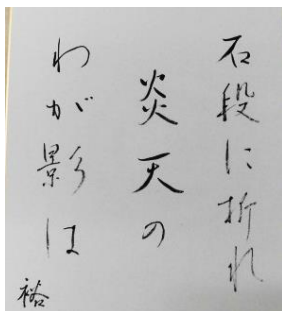 石段に折れ
炎天の
わが影は
裕